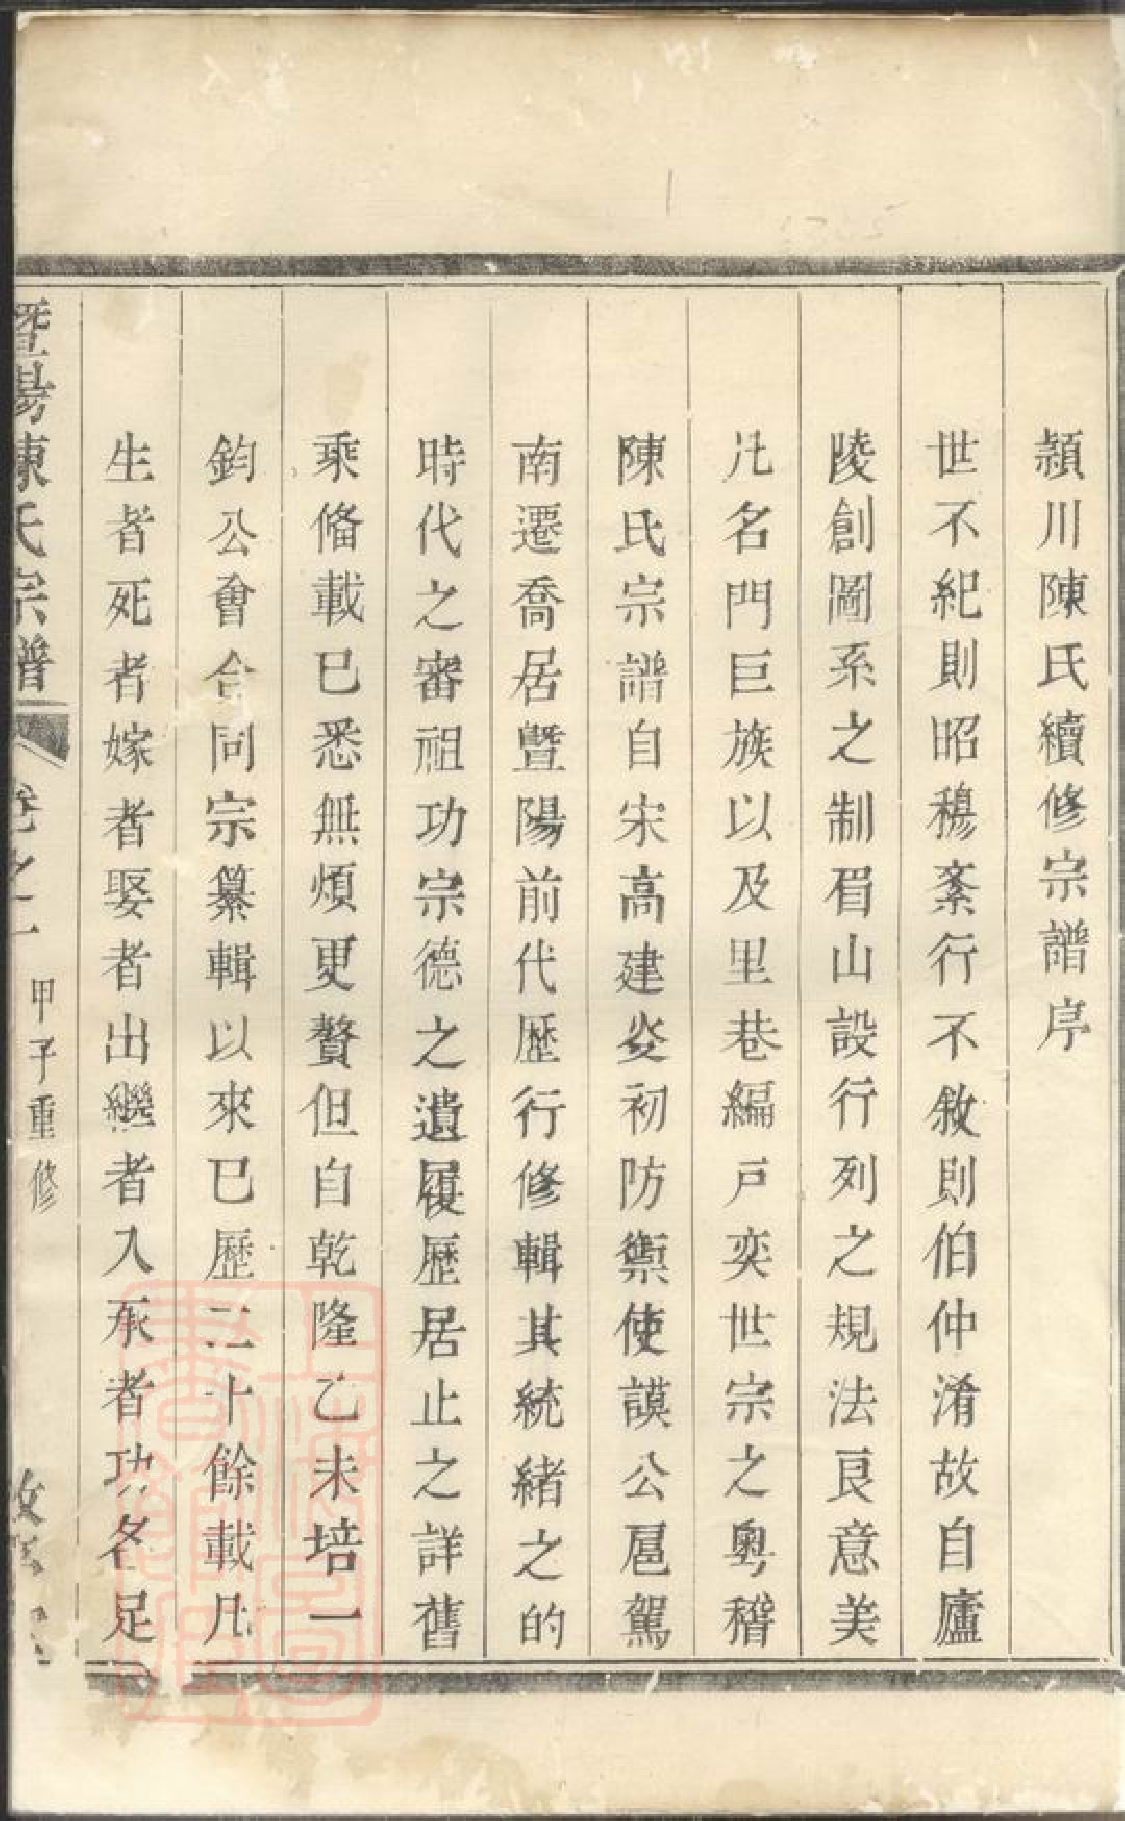 頴川陳氏續修宗譜序
世不紀則昭穆紊行不敘則伯仲淆故自廬
陵創圖系之制眉山設行列之規法良意美
凡名門巨族以及里巷編戸奕世宗之粵稽
陳氏宗譜自宋高建炎初防禦使謨公扈駕
南遷喬居暨陽前代歴行修輯其統緒之的
時代之審祖功宗德之遺履歴居止之詳舊
乘偹載已悉無煩更贅但自乾隆乙未培一
鈞公會合同宗纂輯以來已歷二十餘載凡
生者死者嫁者娶者出繼者入承者功名足
暨陽陳氏宗譜
卷之一
甲子重修